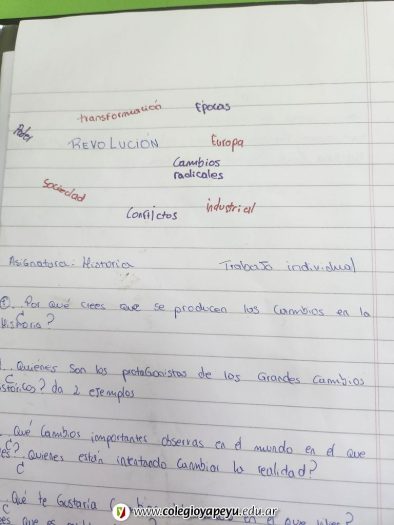 transformación Epocas
Poder
REVOLUCIÓN Europa
Cambios
radicales
Sociedad
industrial
Conflictos
Asignatura: Historia Trabajo individual
Por qué crees que se producen los Cambios en la
Historia?
Quienes son los protagonistas de los Grandes Cambios
históricos? da 2 ejemplos
Qué Cambios importantes observas en el mundo en el que
Quienes están intentando Cambiar la realidad?
Qué te Gustaría
www.colegioyapeyu.edu.ar